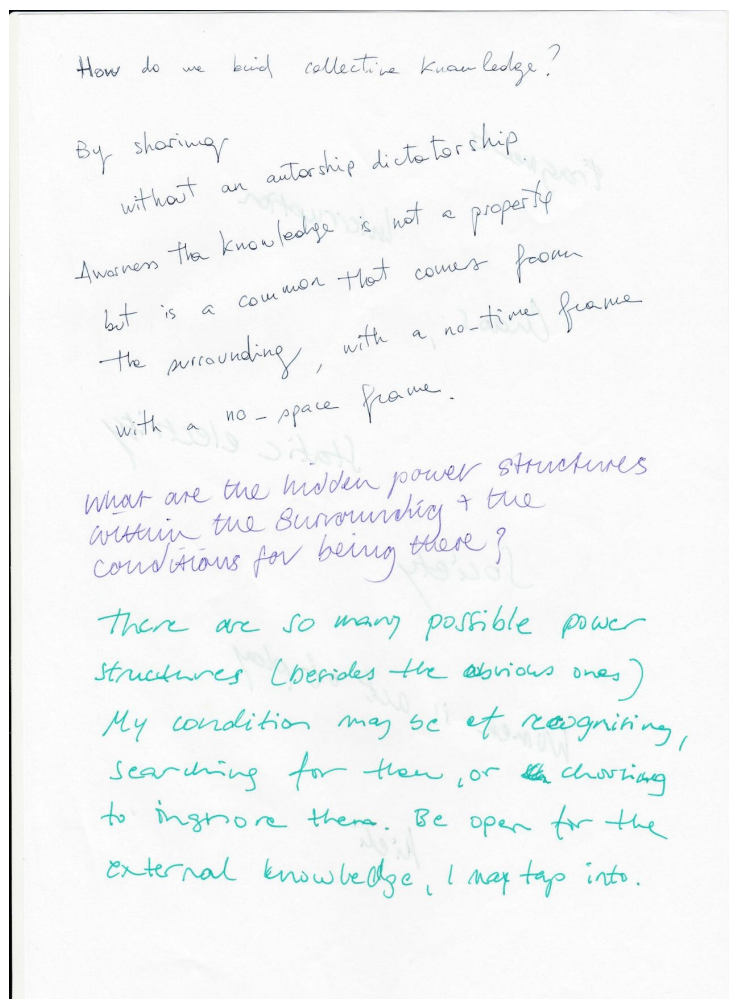 How do we bind collective knowledge?
By sharing
without an autorship dictatorship.
Awarness tha knowledge is not a property
but is a common that comes from
the surrounding, with a no-time frame
with a no-space frame.
what are the hidden power structures
within the surrounding + the
conditions for being there?
There are so many possible power
structures (besides the obvious ones)
My condition may be of recognising,
searching for them, or choosing
to ingnore them. Be open for the
external knowledge, I may tap into.